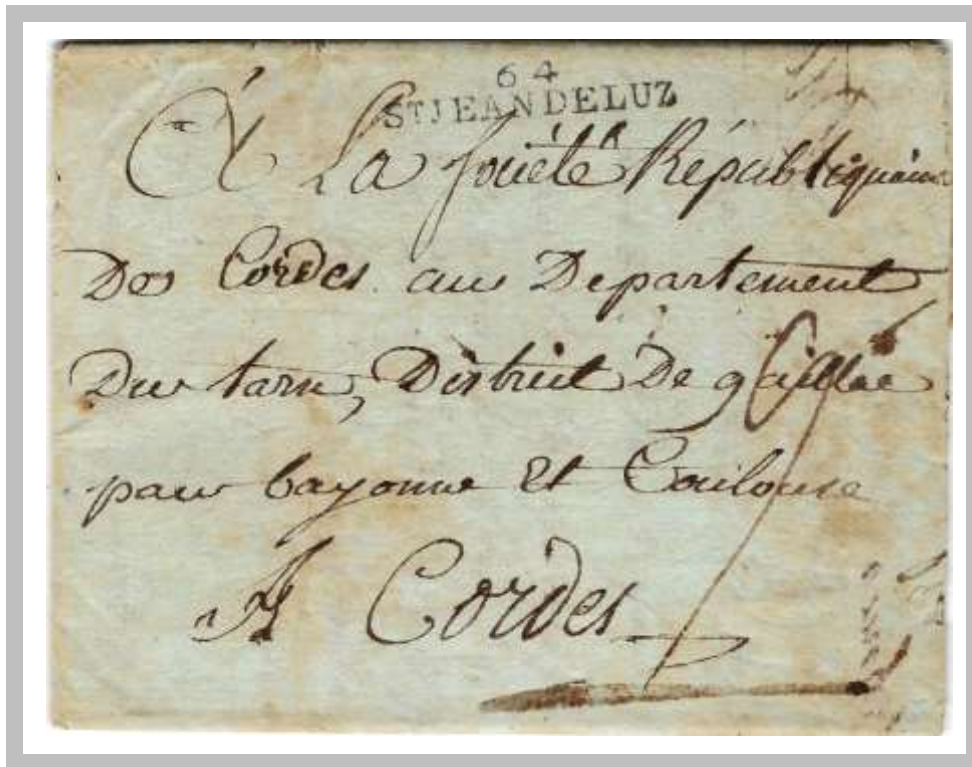 64
STJEANDELUZ
A La société Républiquaine
De Cordes au Departement
Du tarn, District De gaillac
par bayonne et Toulouse
A Cordes